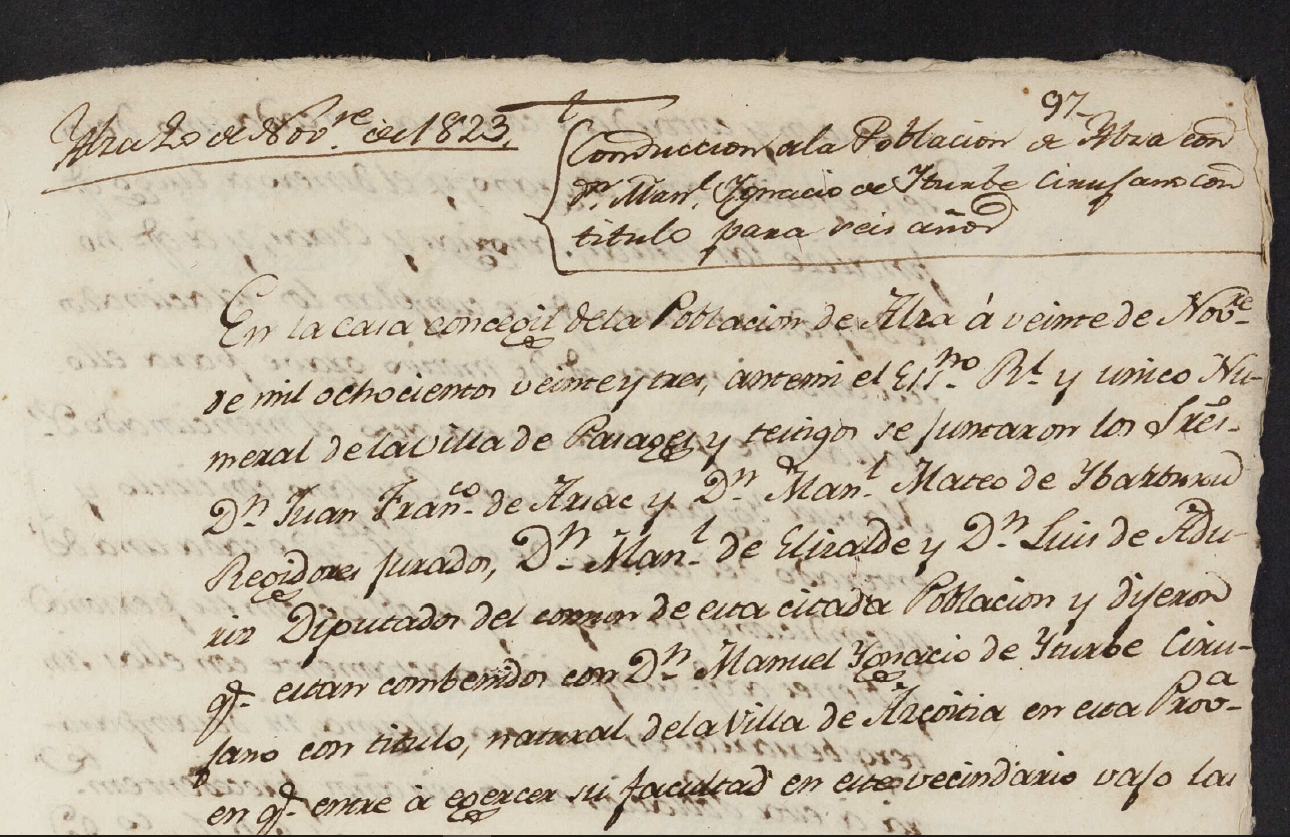 97
Alza 20 de Novre. de 1823.
Conduccion ala Poblacion de Alza con
Dn. Manl. Ygnacio de Yturbe Cirujano con
titulo para seis años
En la casa concegil dela Poblacion de Alza á veinte de Nobre.
de mil ochocientos veinte y tres, antemi el Essno. Rl. y unico Nu-
meral de la Villa de Pasages y testigos se juntaron los Sres.
Dn. Juan Franco. de Arsac y Dn. Manl. Mateo de Ybarburu
Regidores jurados, Dn. Manl. de Elizalde y Dn. Luis de Adu-
riz Diputados del comun de esta citada Poblacion y dijeron
qe. estan combenidos con Dn. Manuel Ygnacio de Yturbe Ciru-
jano con titulo, natural dela Villa de Azcoitia en esta Prova.
en qe. entre á egercer su facultad en este vecindario vajo las